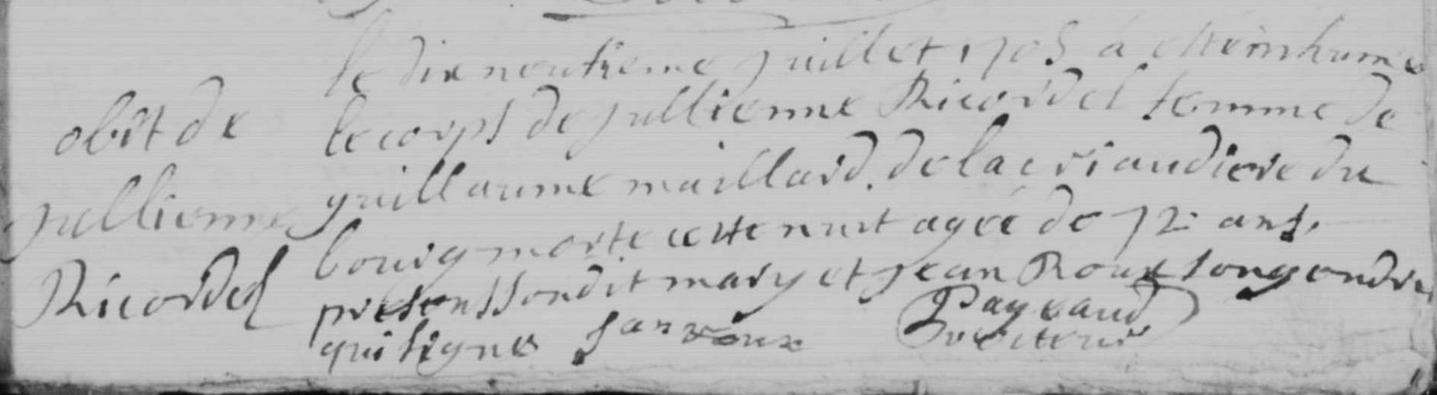 obit de
jullienne
Ricordel
le dix neufieme juillet 1705 a esté inhumé
le corps de jullienne Ricordel femme de
guillaume maillard. de la criaudiere du
bourg morte cette nuit agée de 72 ans,
presens sondit mary et jean Roux son gendre
qui signe jan roux Payeaud
recteur